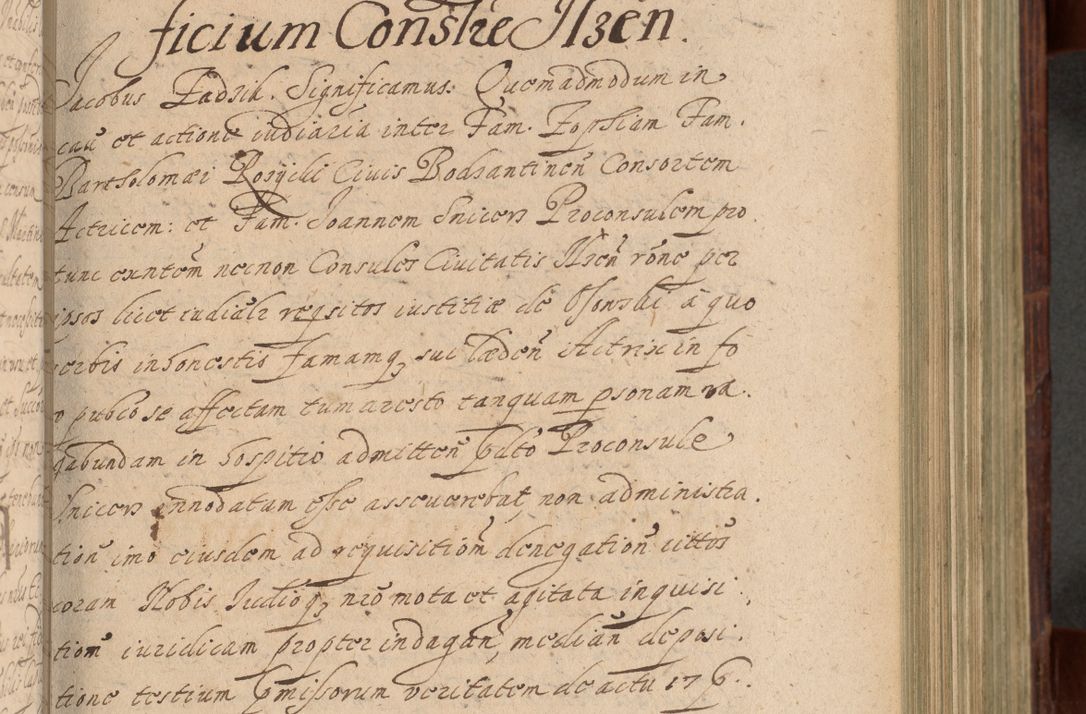 ficium Constre Ilzen.
Jacobus Zadzik. Significamus: Quemadmodum in
cau et actione iudiaria inter Fam. Zophiam Fam.
Bartholomæi Rosycki Ciuis Bodzantinen Consortem
Actricem: et Fam. Joannem Snicers Proconsulem pro
tunc exntem necnon Consules Ciuitatis Ilzen rone per
ipsos licet iudialr reqsitos iustitiæ de Osowski a quo
verbis inhonestis famamq sui læden Actrix in fo
ro pubco se affectam tum aresto tanquam psonam va.
gabundam in hospitio admitten pdto Proconsule
Snicers innodatum esse asseuerebat, non administra.
tion imo eiusdem ad requisitiom denegation
coram Nobis Judioq nro mota et agitata inquisi.
tiom iuridicam propter indagan, median deposi.
tione testium pmissorum veritatem de actu 17 9b.